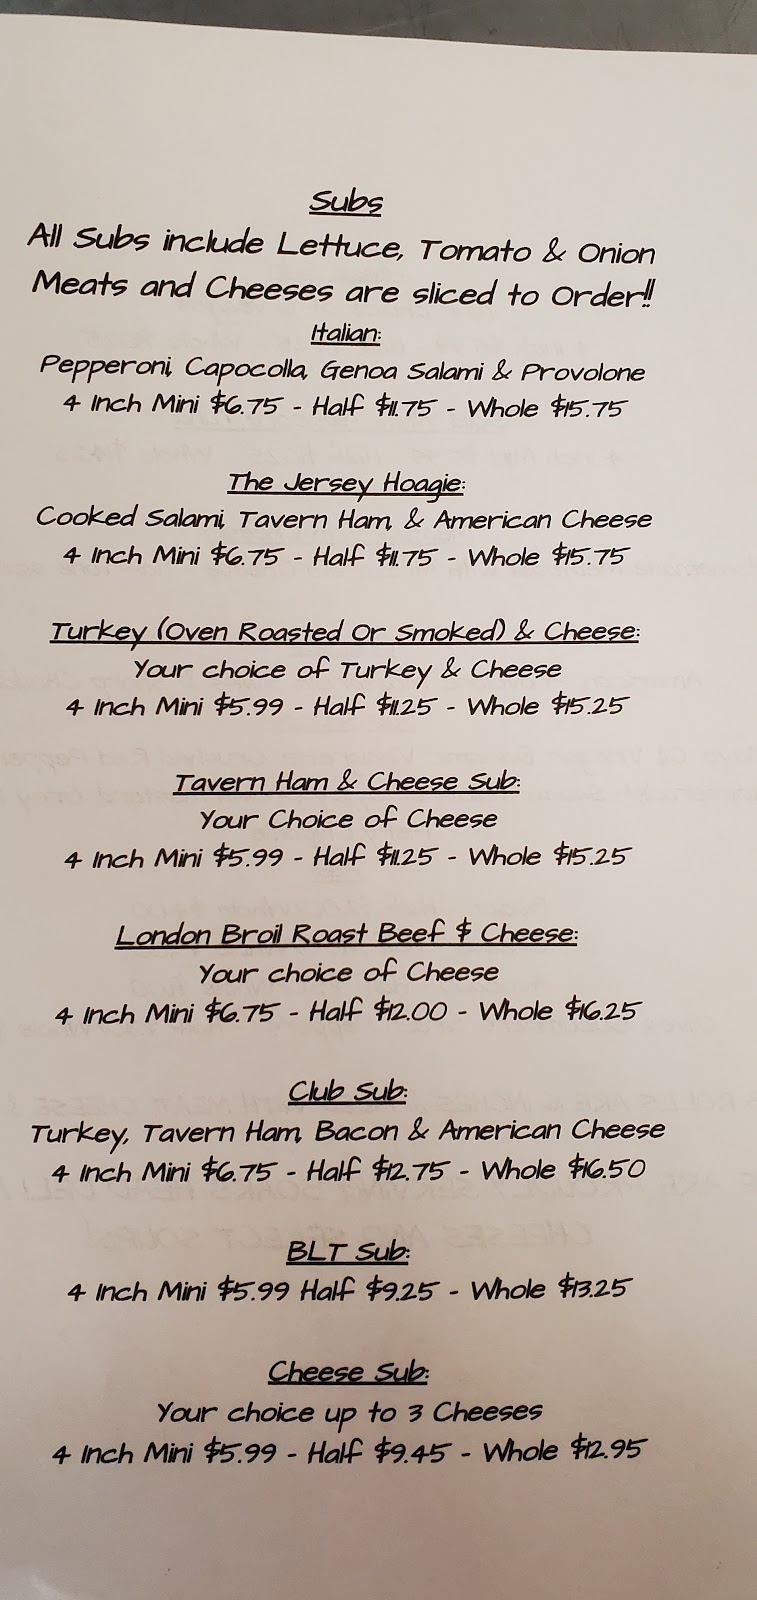 Subs
All Subs include Lettuce, Tomato & Onion
Meats and Cheeses are sliced to Order!!
Italian:
Pepperoni, Capocolla, Genoa Salami & Provolone
4 Inch Mini $6.75 - Half $11.75 - Whole $15.75
The Jersey Hoagie:
Cooked Salami, Tavern Ham, & American Cheese
4 Inch Mini $6.75 - Half $11.75 - Whole $15.75
Turkey (Oven Roasted Or Smoked) & Cheese:
Your choice of Turkey & Cheese
4 Inch Mini $5.99 - Half $11.25 - Whole $15.25
Tavern Ham & Cheese Sub:
Your Choice of Cheese
4 Inch Mini $5.99 - Half $11.25 - Whole $15.25
London Broil Roast Beef $ Cheese:
Your choice of Cheese
4 Inch Mini $6.75 - Half $12.00 - Whole $16.25
Club Sub:
Turkey, Tavern Ham, Bacon & American Cheese
4 Inch Mini $6.75 - Half $12.75 - Whole $16.50
BLT Sub:
4 Inch Mini $5.99 Half $9.25 - Whole $13.25
Cheese Sub:
Your choice up to 3 Cheeses
4 Inch Mini $5.99 - Half $9.45 - Whole $12.95